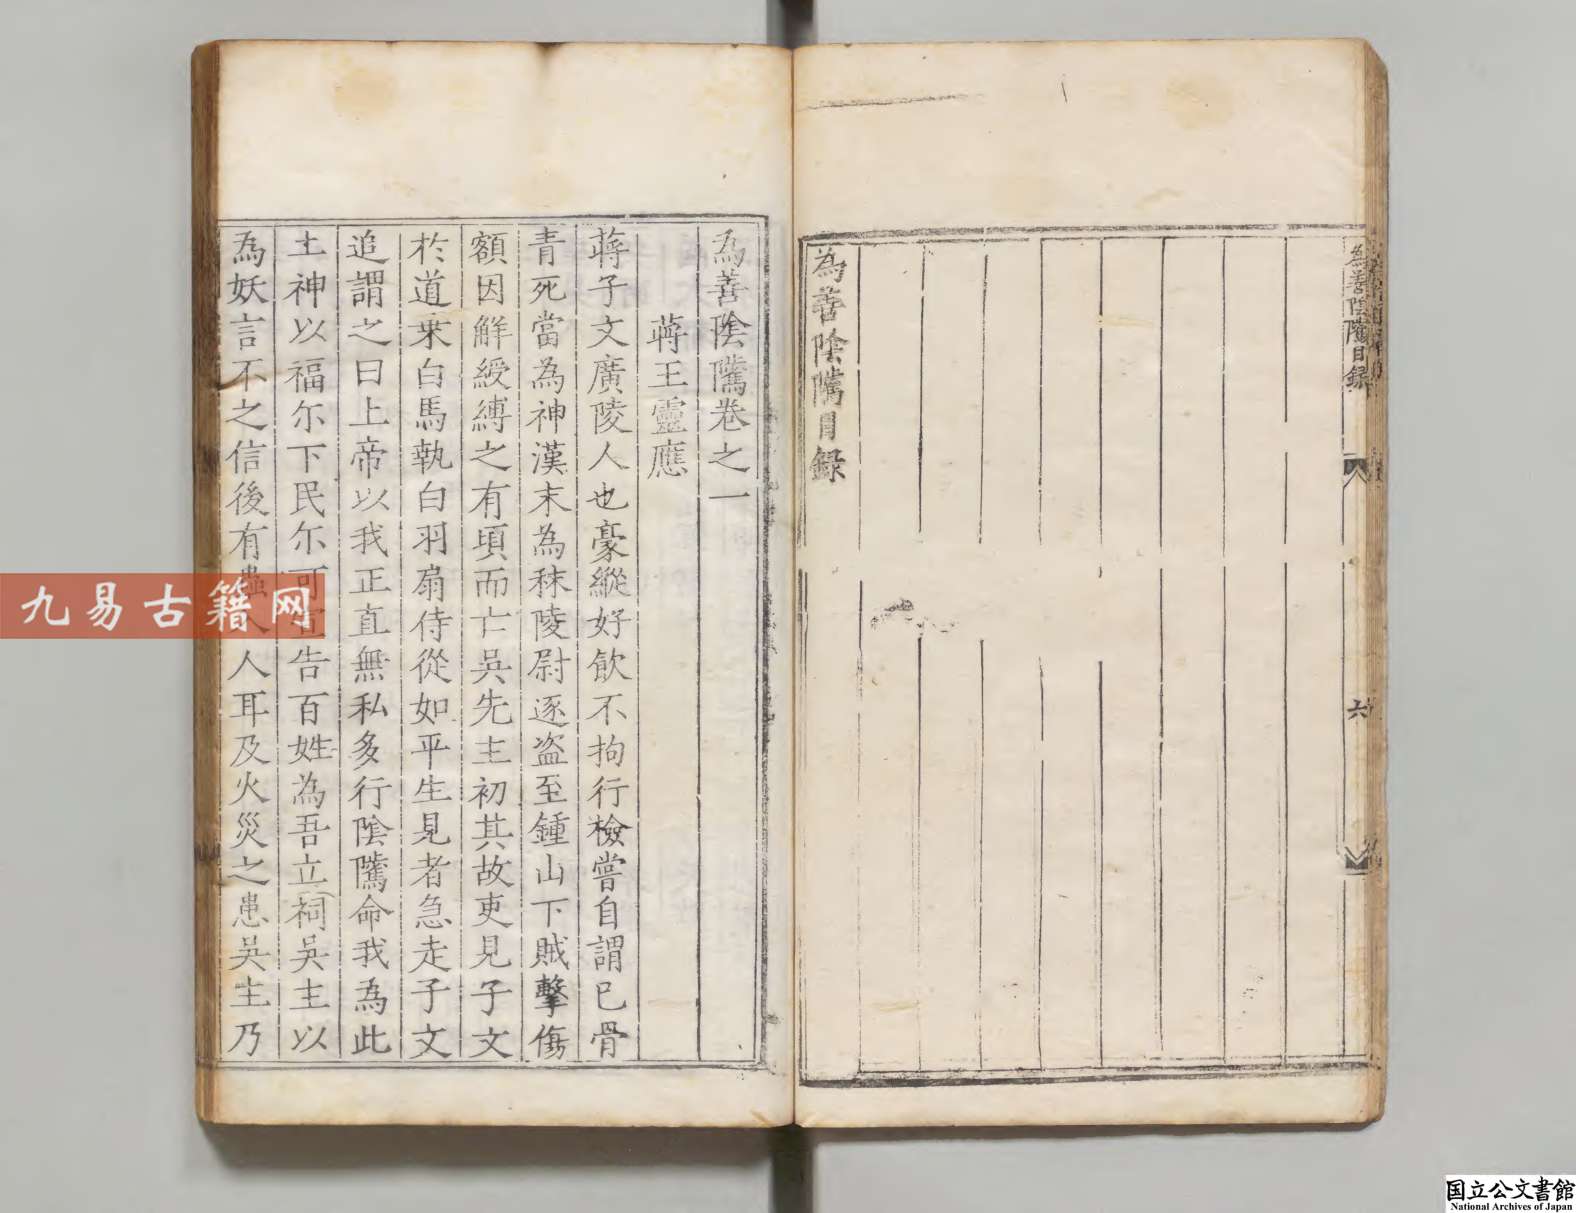 為善陰隲目錄
六
為善陰隲目錄
為善陰隲卷之一
蔣王靈應
蔣子文廣陵人也豪縱好飲不拘行檢嘗自謂已骨
青死當為神漢末為秣陵尉逐盗至鍾山下賊擊傷
額因解綬縛之有頃而亡吳先主初其故吏見子文
於道乗白馬執白羽扇侍從如平生見者急走子文
追謂之曰上帝以我正直無私多行陰隲命我為此
土神以福尓下民尓可宣告百姓為吾立祠吳主以
為妖言不之信後有蟲入人耳及火災之患吳主乃
九易古籍网
国立公文書館
National Archives of Japan